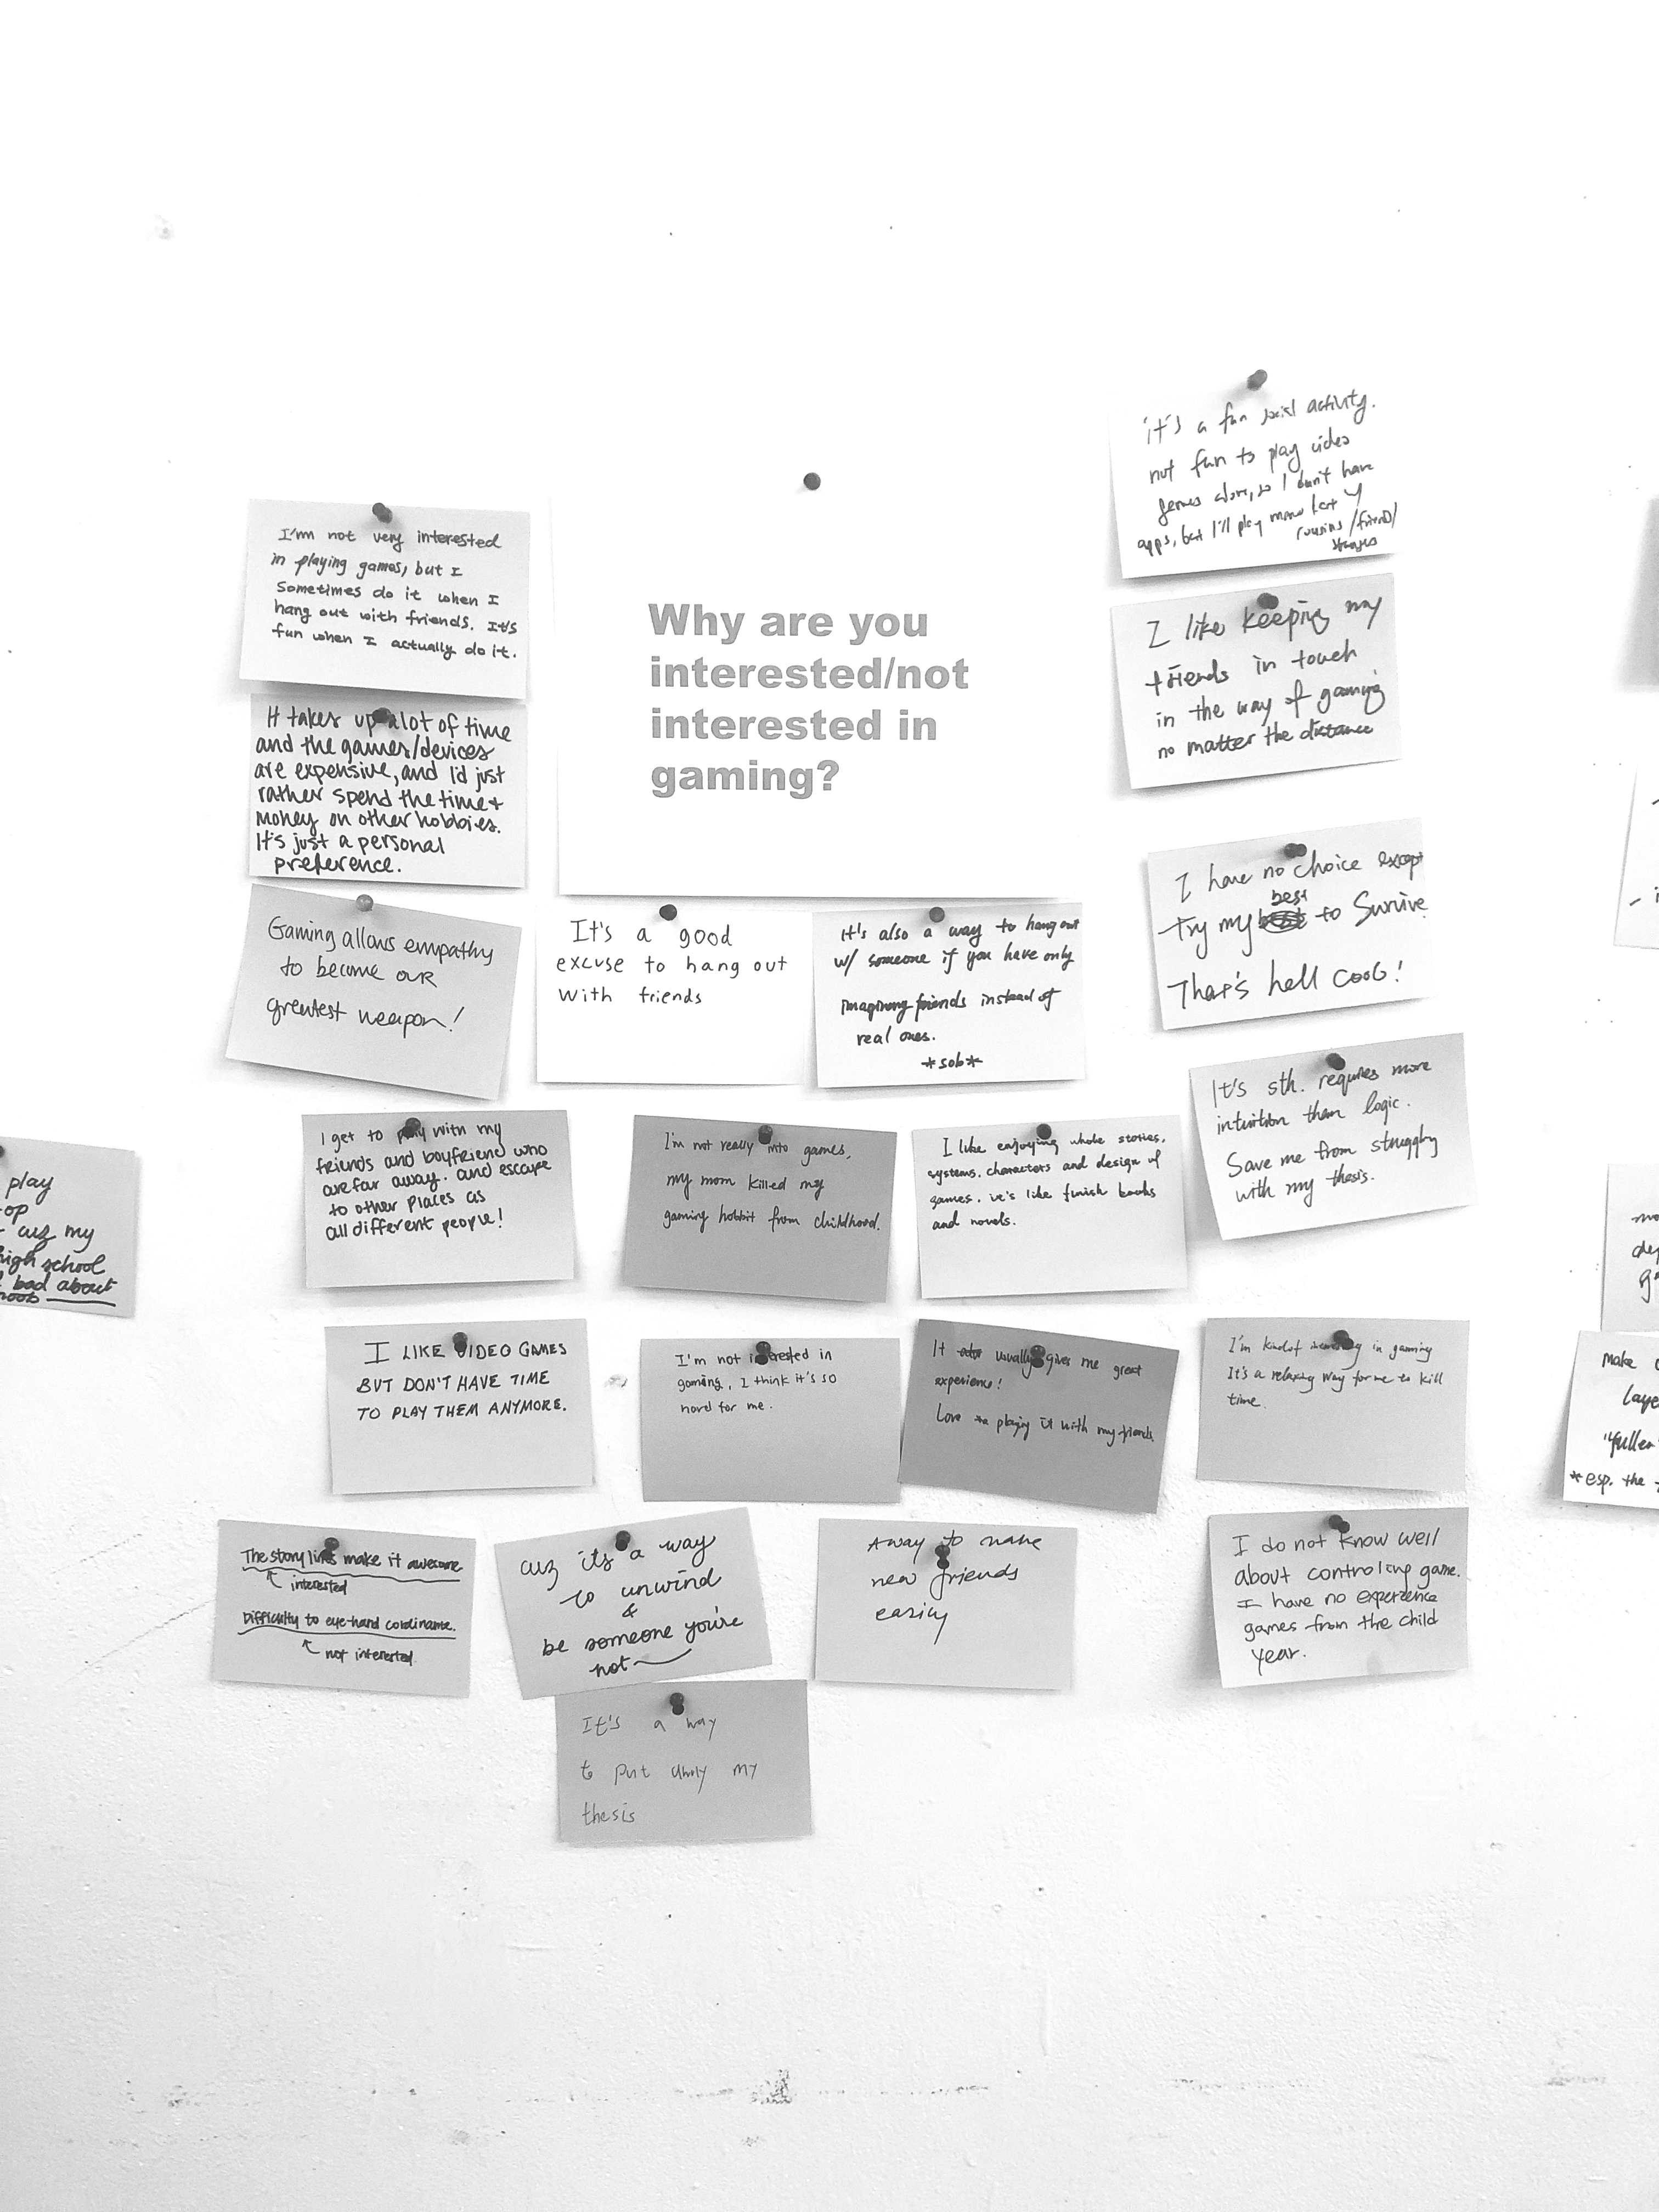 Why are you
interested/not
interested in
gaming?
I'm not very interested
in playing games, but I
Sometimes do it when I
hang out with friends. It's
fun when I actually do it.
It takes up a lot of time
and the games/devices
are expensive, and I'd just
rather spend the time +
money on other hobbies.
It's just a personal
preference.
Gaming allows empathy
to become our
greatest weapon!
It's a good
excuse to hang out
with friends
It's also a way to hang out
w/ someone if you have only
imaginary friends instead of
real ones.
*sob*
it's a fun social activity.
not fun to play video
games alone, so I don't have
apps, but I'll play mario kart
cousins/friends/
strangers
I like keeping my
friends in touch
in the way of gaming
no matter the distance
I have no choice except
Try my best to Survive.
That's hell cool!
It's sth. requires more
intuition them logic.
Save me from struggling
with my thesis.
I get to play with my
friends and boyfriend who
are far away. and escape
to other places as
all different people!
I'm not really into games,
my mom killed my
gaming hobbit from childhood.
I like enjoying whole stories,
systems, characters and design of
games, it's like finish books
and novels.
I LIKE VIDEO GAMES
BUT DON'T HAVE TIME
TO PLAY THEM ANYMORE.
I'm not interested in
gaming, I think it's so
hard for me.
It usually gives me great
experience!
Love playing it with my friends.
I'm kind of in gaming
It's a relaxing way for me to kill
time.
The story lines make it awesome.
interested
Difficulty to eye-hand
not interested.
cuz it's a way
to unwind
&
be someone you're
not
A way to make
new friends
easily
I do not know well
about controling game.
I have no experience
games from the child
year.
It's a way
to put away my
thesis
play
cuz my
high school
bad about
make
"fuller
*esp. the